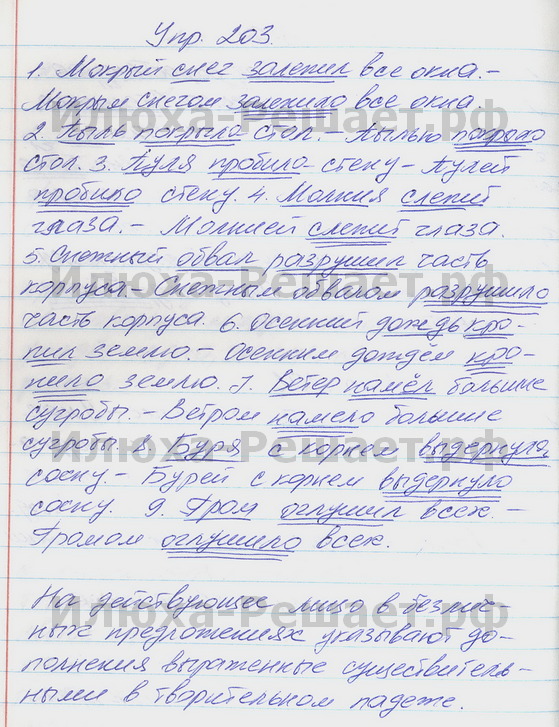 Упр. 203.
1. Мокрый снег залепил все окна. -
Мокрым снегом залепило все окна.
2. Пыль покрыла стол. - Пылью покрыло
стол. 3. Пуля пробила стену - Пулей
пробило стену. 4. Молния слепит
глаза. - Молнией слепит глаза.
5. Снежный обвал разрушил часть
корпуса. - Снежным обвалом разрушило
часть корпуса. 6. Осенний дождь кро-
пил землю. - Осенним дождём кро-
пило землю. 7. Ветер намёл большие
сугробы. - Ветром намело большие
сугробы. 8. Буря с корнем выдернула
сосну. - Бурей с корнем выдернуло
сосну. 9. Гром оглушил всех. -
Громом оглушило всех.
На действующее лицо в безлич-
ных предложениях указывают до-
полнения выраженные существитель-
ными в творительном падеже.
Илюха-Решает.рф
Илюха-Решает.рф
Илюха-Решает.рф
Илюха-Решает.рф